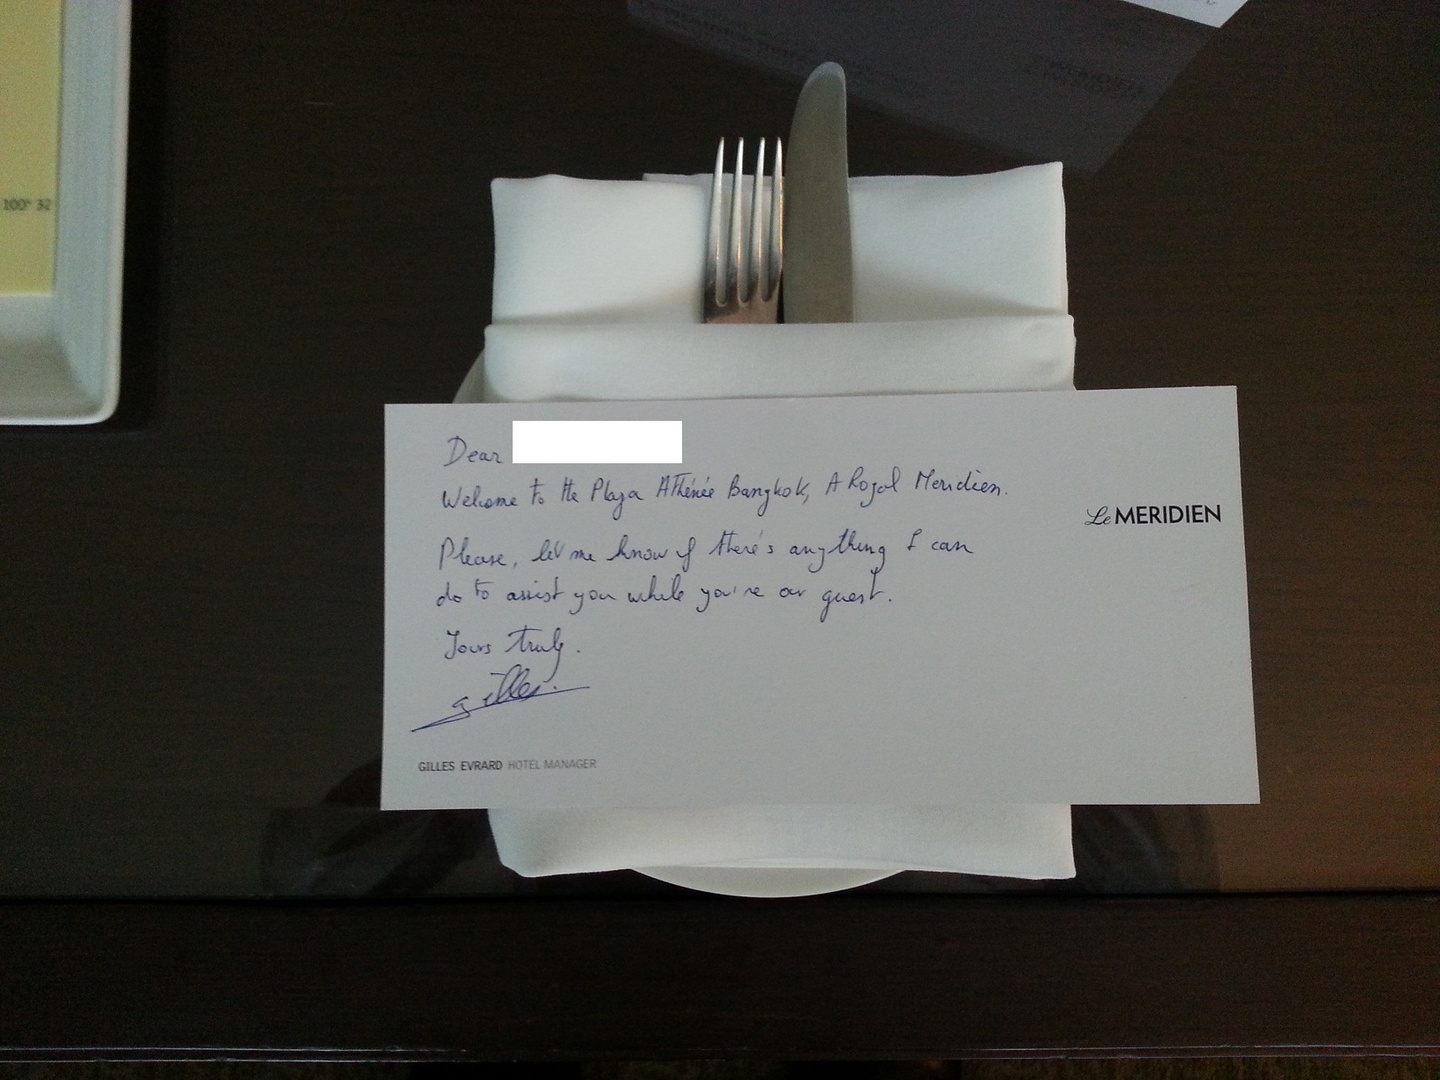 100° 32'
Dear
Welcome to the Plaza Athénée Bangkok, A Royal Meridien.
Le MERIDIEN
Please, let me know if there's anything I can
do to assist you while you're our guest.
Yours truly.
Gilles.
GILLES EVRARD HOTEL MANAGER